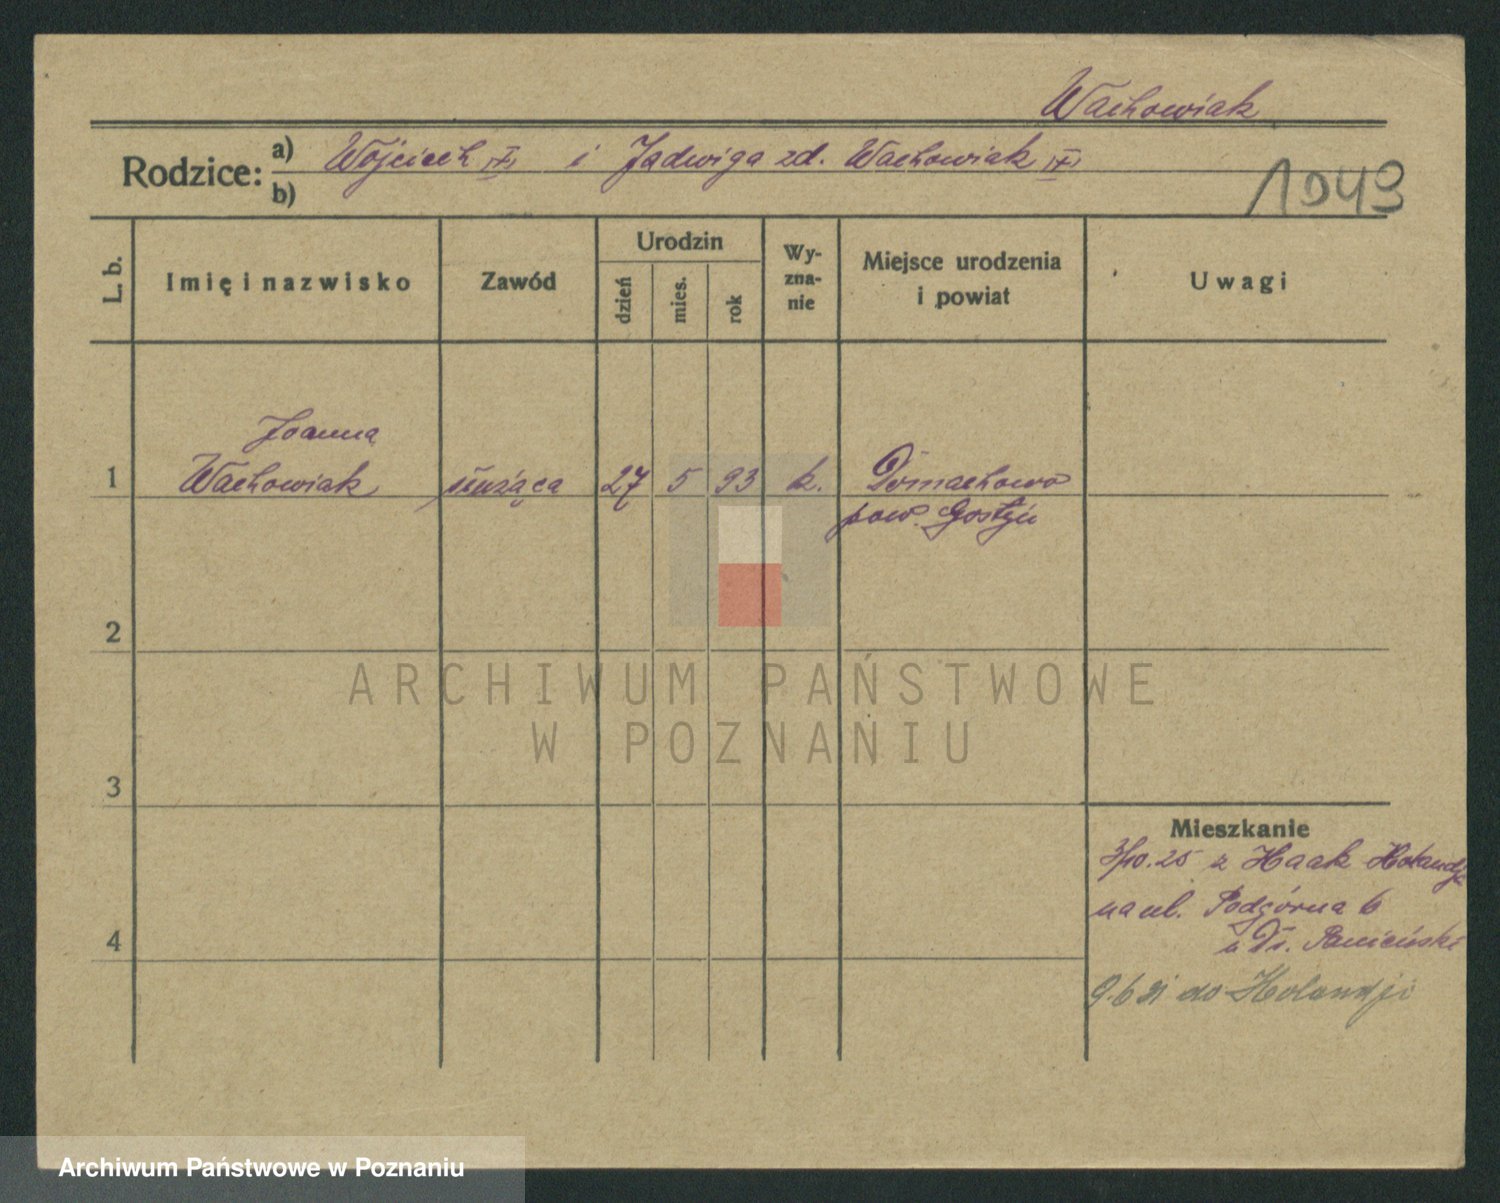 Wachowiak
Rodzice: a) Wojciech (†) i Jadwiga zd. Wachowiak (†)
b)
1943
L. b. Imię i nazwisko Zawód Urodzin dzień mies. rok Wy-zna-nie Miejsce urodzenia i powiat Uwagi
Joanna
1 Wachowiak służąca 27 5 93 k. Domachowo
pow. Gostyń
2
3
Mieszkanie
3/10.25 z Haak Holandji
na ul. Podgórna 6
4 u Dr.
9.6 31 do Holandji
ARCHIWUM PAŃSTWOWE
W POZNANIU
Archiwum Państwowe w Poznaniu